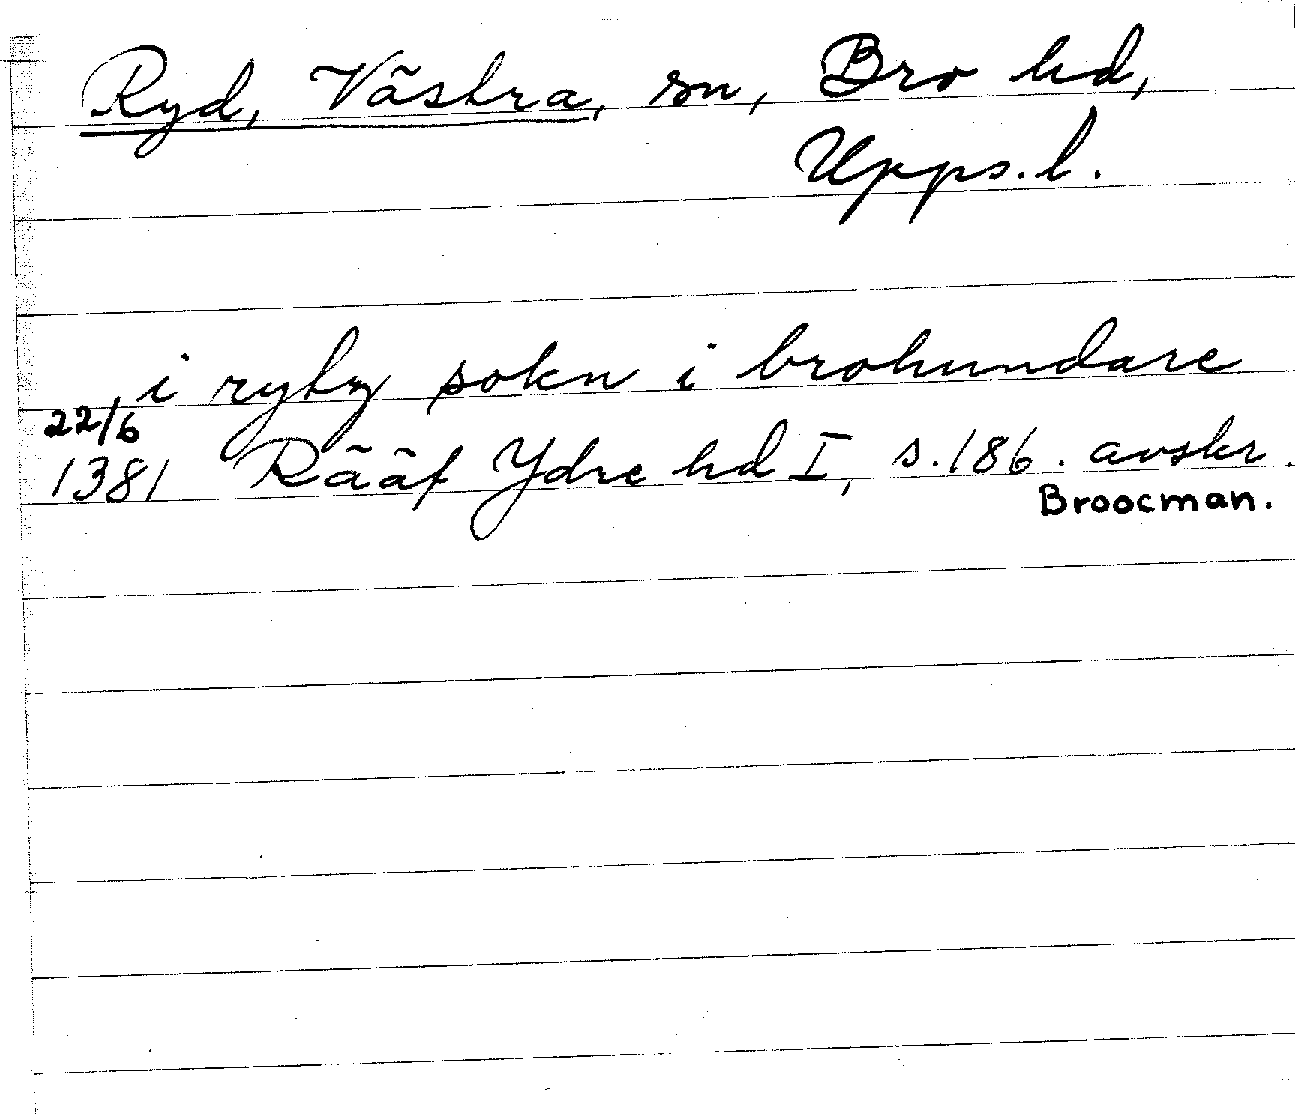 Ryd, Västra, sn, Bro hd,
Upps. l.
i ryby sokn i brohundare
22/6
1381 Rääf Ydre hd I, s. 186. avskr.
Broocman.